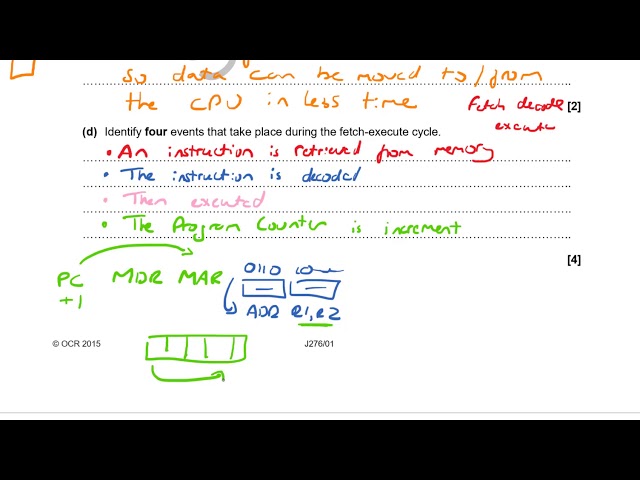 so data can be moved to/from
the CPU in less time
Fetch decode
execute
[2]
(d) Identify four events that take place during the fetch-execute cycle.
• An instruction is retrieved from memory
• The instruction is decoded
• Then executed
• The Program Counter is increment
[4]
PC MDR MAR
+1
0110
ADD R1, R2
© OCR 2015 J276/01